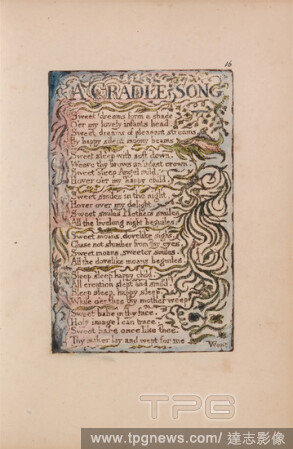 16
A CRADLE SONG
Sweet dreams form a shade
O'er my lovely infants head
Sweet dreams of pleasant streams
By happy silent moony beams
Sweet sleep with soft down,
Weave thy brows an infant crown
Sweet sleep Angel mild,
Hover o'er my happy child
Sweet smiles in the night
Hover over my delight
Sweet smiles Mothers smiles
All the livelong night beguiles.
Sweet moans, dovelike sighs,
Chase not slumber from thy eyes.
Sweet moans, sweeter smiles,
All the dovelike moans beguiles.
Sleep sleep happy child.
All creation slept and smil'd.
Sleep sleep, happy sleep,
While o'er thee thy mother weep
Sweet babe in thy face,
Holy image I can trace.
Sweet babe once like thee,
Thy maker lay and wept for me
Wept
TPG
www.tpgnews.com / 達志影像